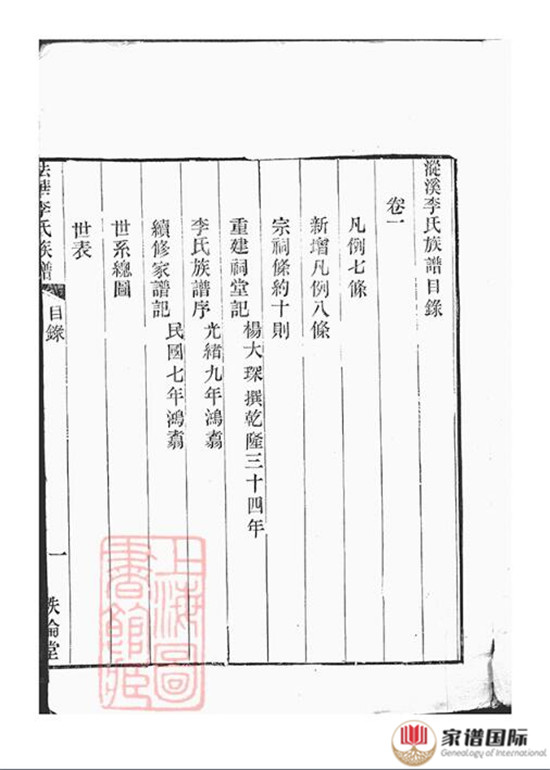 漎溪李氏族譜目錄
卷一
凡例七條
新增凡例八條
宗祠條約十則
重建祠堂記 楊大琛撰乾隆三十四年
李氏族譜序 光緒九年鴻翥
續修家譜記 民國七年鴻翥
世系總圖
世表
法華李氏族譜 目錄 一 倫堂
上海圖書館藏
家谱国际
Genealogy of International